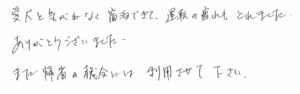 愛犬と気がねなく宿泊できて、運転の疲れもとれました…
ありがとうございました…
また帰省の機会には利用させて下さい.